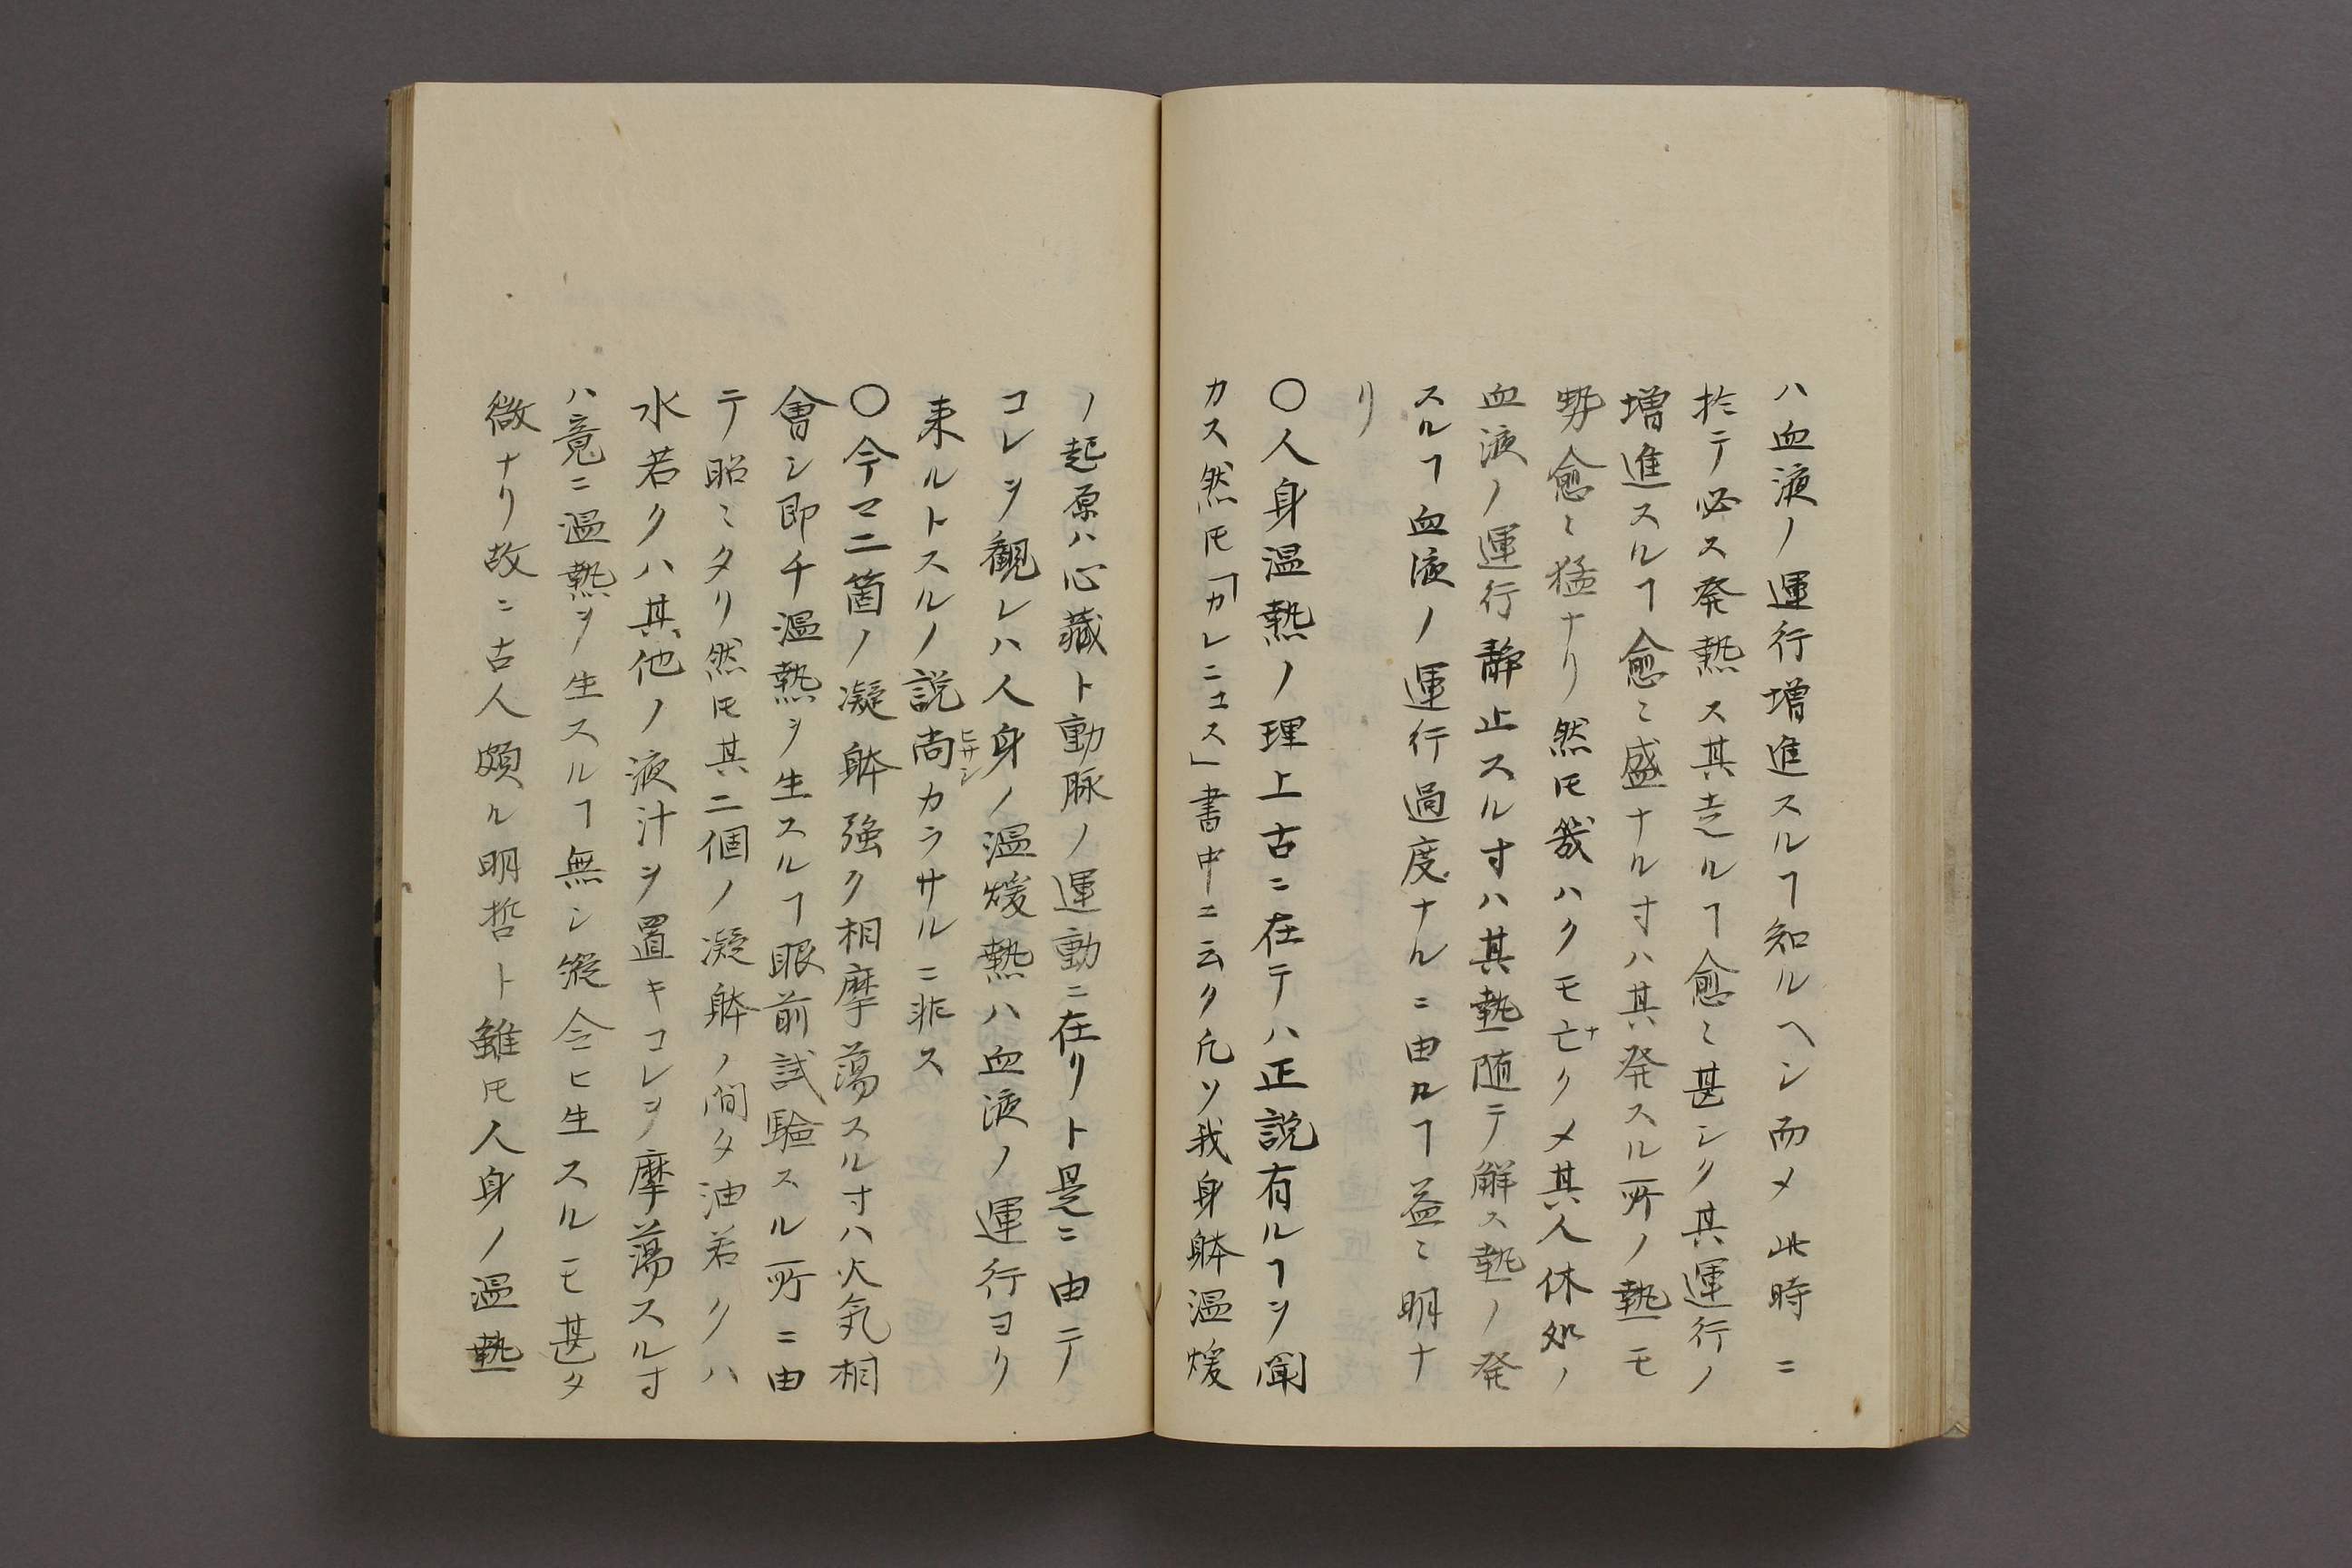 ハ血液ノ運行増進スルヿ知ルヘシ而メ此時ニ
於テ必ス発熱ス其走ルヿ愈〻甚シク其運行ノ
増進スルヿ愈〻盛ナル寸ハ其発スル所ノ熱モ
勢愈〻猛ナリ然𪜈幾ハクモ亡クメ其人休処ノ
ナ
血液ノ運行静止スル寸ハ其熱随テ解ス熱ノ発
スルヿ血液ノ運行過度ナルニ由ルヿ益〻明ナ
リ
〇人身温熱ノ理上古ニ在テハ正説有ルヿヲ聞
カス然𪜈「カレニュス」書中ニ云ク凡ソ我身躰温煖
ノ起原ハ心蔵ト動脉ノ運動ニ在リト是ニ由テ
コレヲ観レハ人身ノ温煖熱ハ血液ノ運行ヨリ
来ルトスルノ説尚カラサルニ非ス
ヒサシ
〇今マ二箇ノ凝躰強ク相摩蕩スル寸ハ火気相
會シ即チ温熱ヲ生スルヿ眼前試験スル所ニ由
テ昭〻タリ然𪜈其二個ノ凝躰ノ間タ油若クハ
水若クハ其他ノ液汁ヲ置キコレヲ摩蕩スル寸
ハ竟ニ温熱ヲ生スルヿ無シ縦令ヒ生スルモ甚タ
微ナリ故ニ古人頗ル明哲ト雖𪜈人身ノ温熱